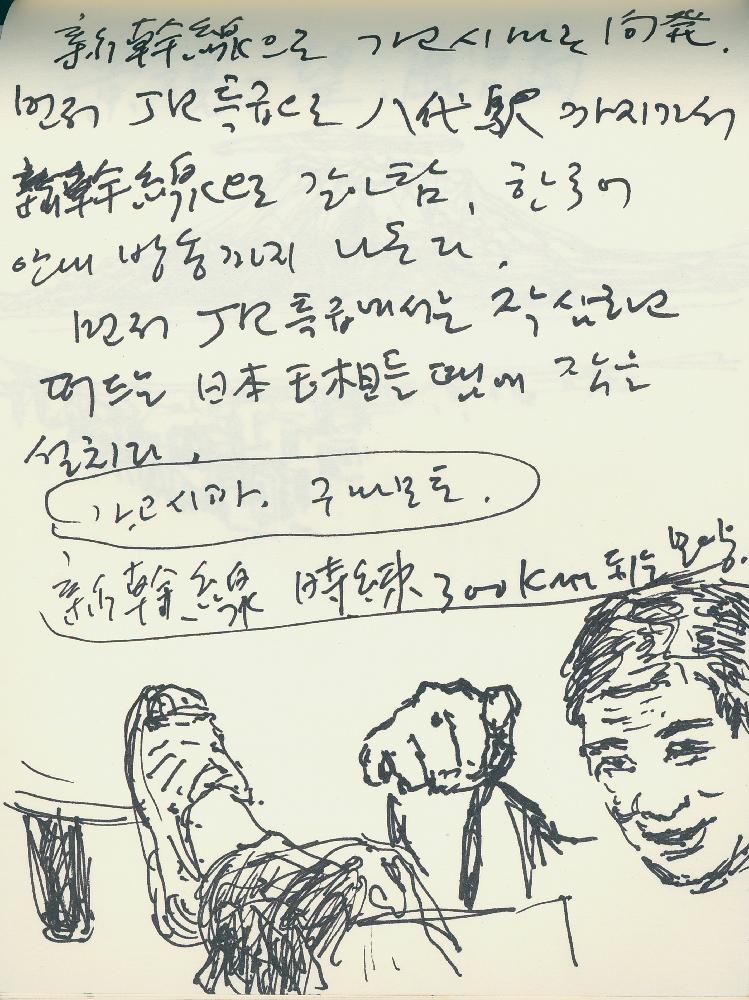 新幹線으로 가고시마로 向發.
먼저 JR특급으로 八代駅 까지가서
新幹線으로 갈아탐, 한국어
안내 방송까지 나온다.
먼저 JR특급에서는
日本 때문에 작은
설치다.
가고시마. 구마모토.
新幹線 時速 300Km 되는 모양.